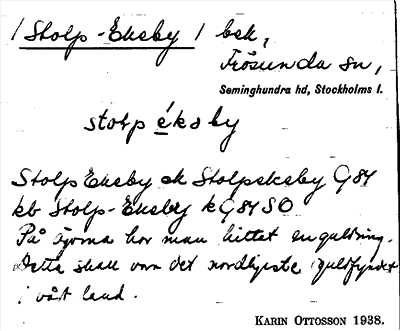 / Stolp-Eksby / bsk,
Frösunda sn,
Seminghundra hd, Stockholms l.
stolp éksby
Stolp Eksby ek Stolpeksby G84
kb Stolp-Eksby k G84 SO
På ägorna har man hittat en guldring.
Detta skall var det nordligste guldfyndet
i vårt land.
KARIN OTTOSSON 1938.